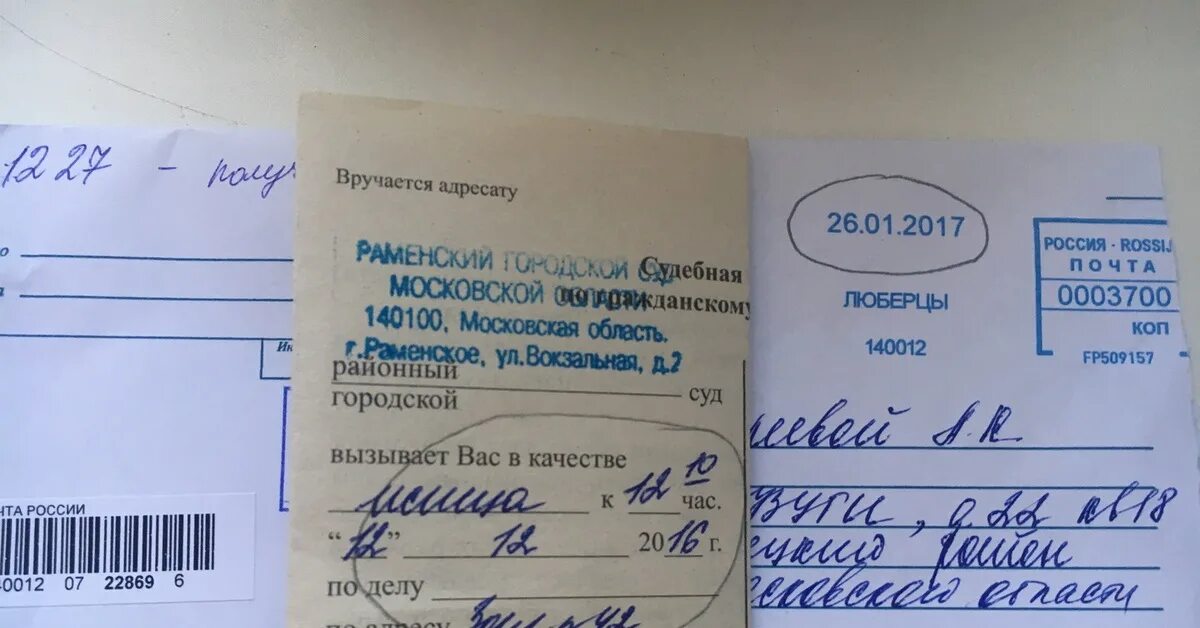 1227 - получ
ЧТА РОССИИ
40012 07 22869 6
Вручается адресату
РАМЕНСКИЙ ГОРОДСКОЙ СУД
МОСКОВСКОЙ ОБЛАСТИ
140100, Московская область,
г.Раменское, ул.Вокзальная, д.2
Судебная
по гражданскому
районный
городской
суд
вызывает Вас в качестве
истца к 12 10 час.
“12” 12 2016 г.
по делу
по адресу Зал № 42
26.01.2017
ЛЮБЕРЦЫ
140012
РОССИЯ - ROSSIJ
ПОЧТА
0003700
КОП
FP509157
еевой А.К
д.22 кв18
ецкий район
осковского области